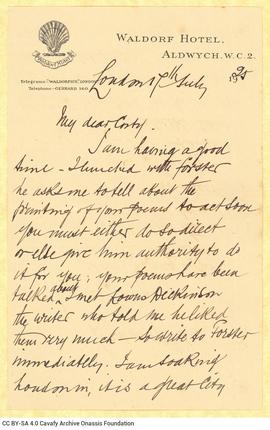 WALDORF HOTEL,
ALDWYCH. W.C. 2.
Telegrams "WALDORFIUS" LONDON
Telephone - GERRARD 140.
London 17th July 1925
My dear Costy.
I am having a good
time - I lunched with Forster
he asks me to tell about the
printing of your poems to act soon
you must either do so direct
or else give him authority to do
it for you; your poems have been
talked about I met Lowes Dickinson
the writer who told me he liked
them very much - So write to Forster
immediately. I am soaking
London in, it is a great City
CC BY-SA 4.0 Cavafy Archive Onassis Foundation